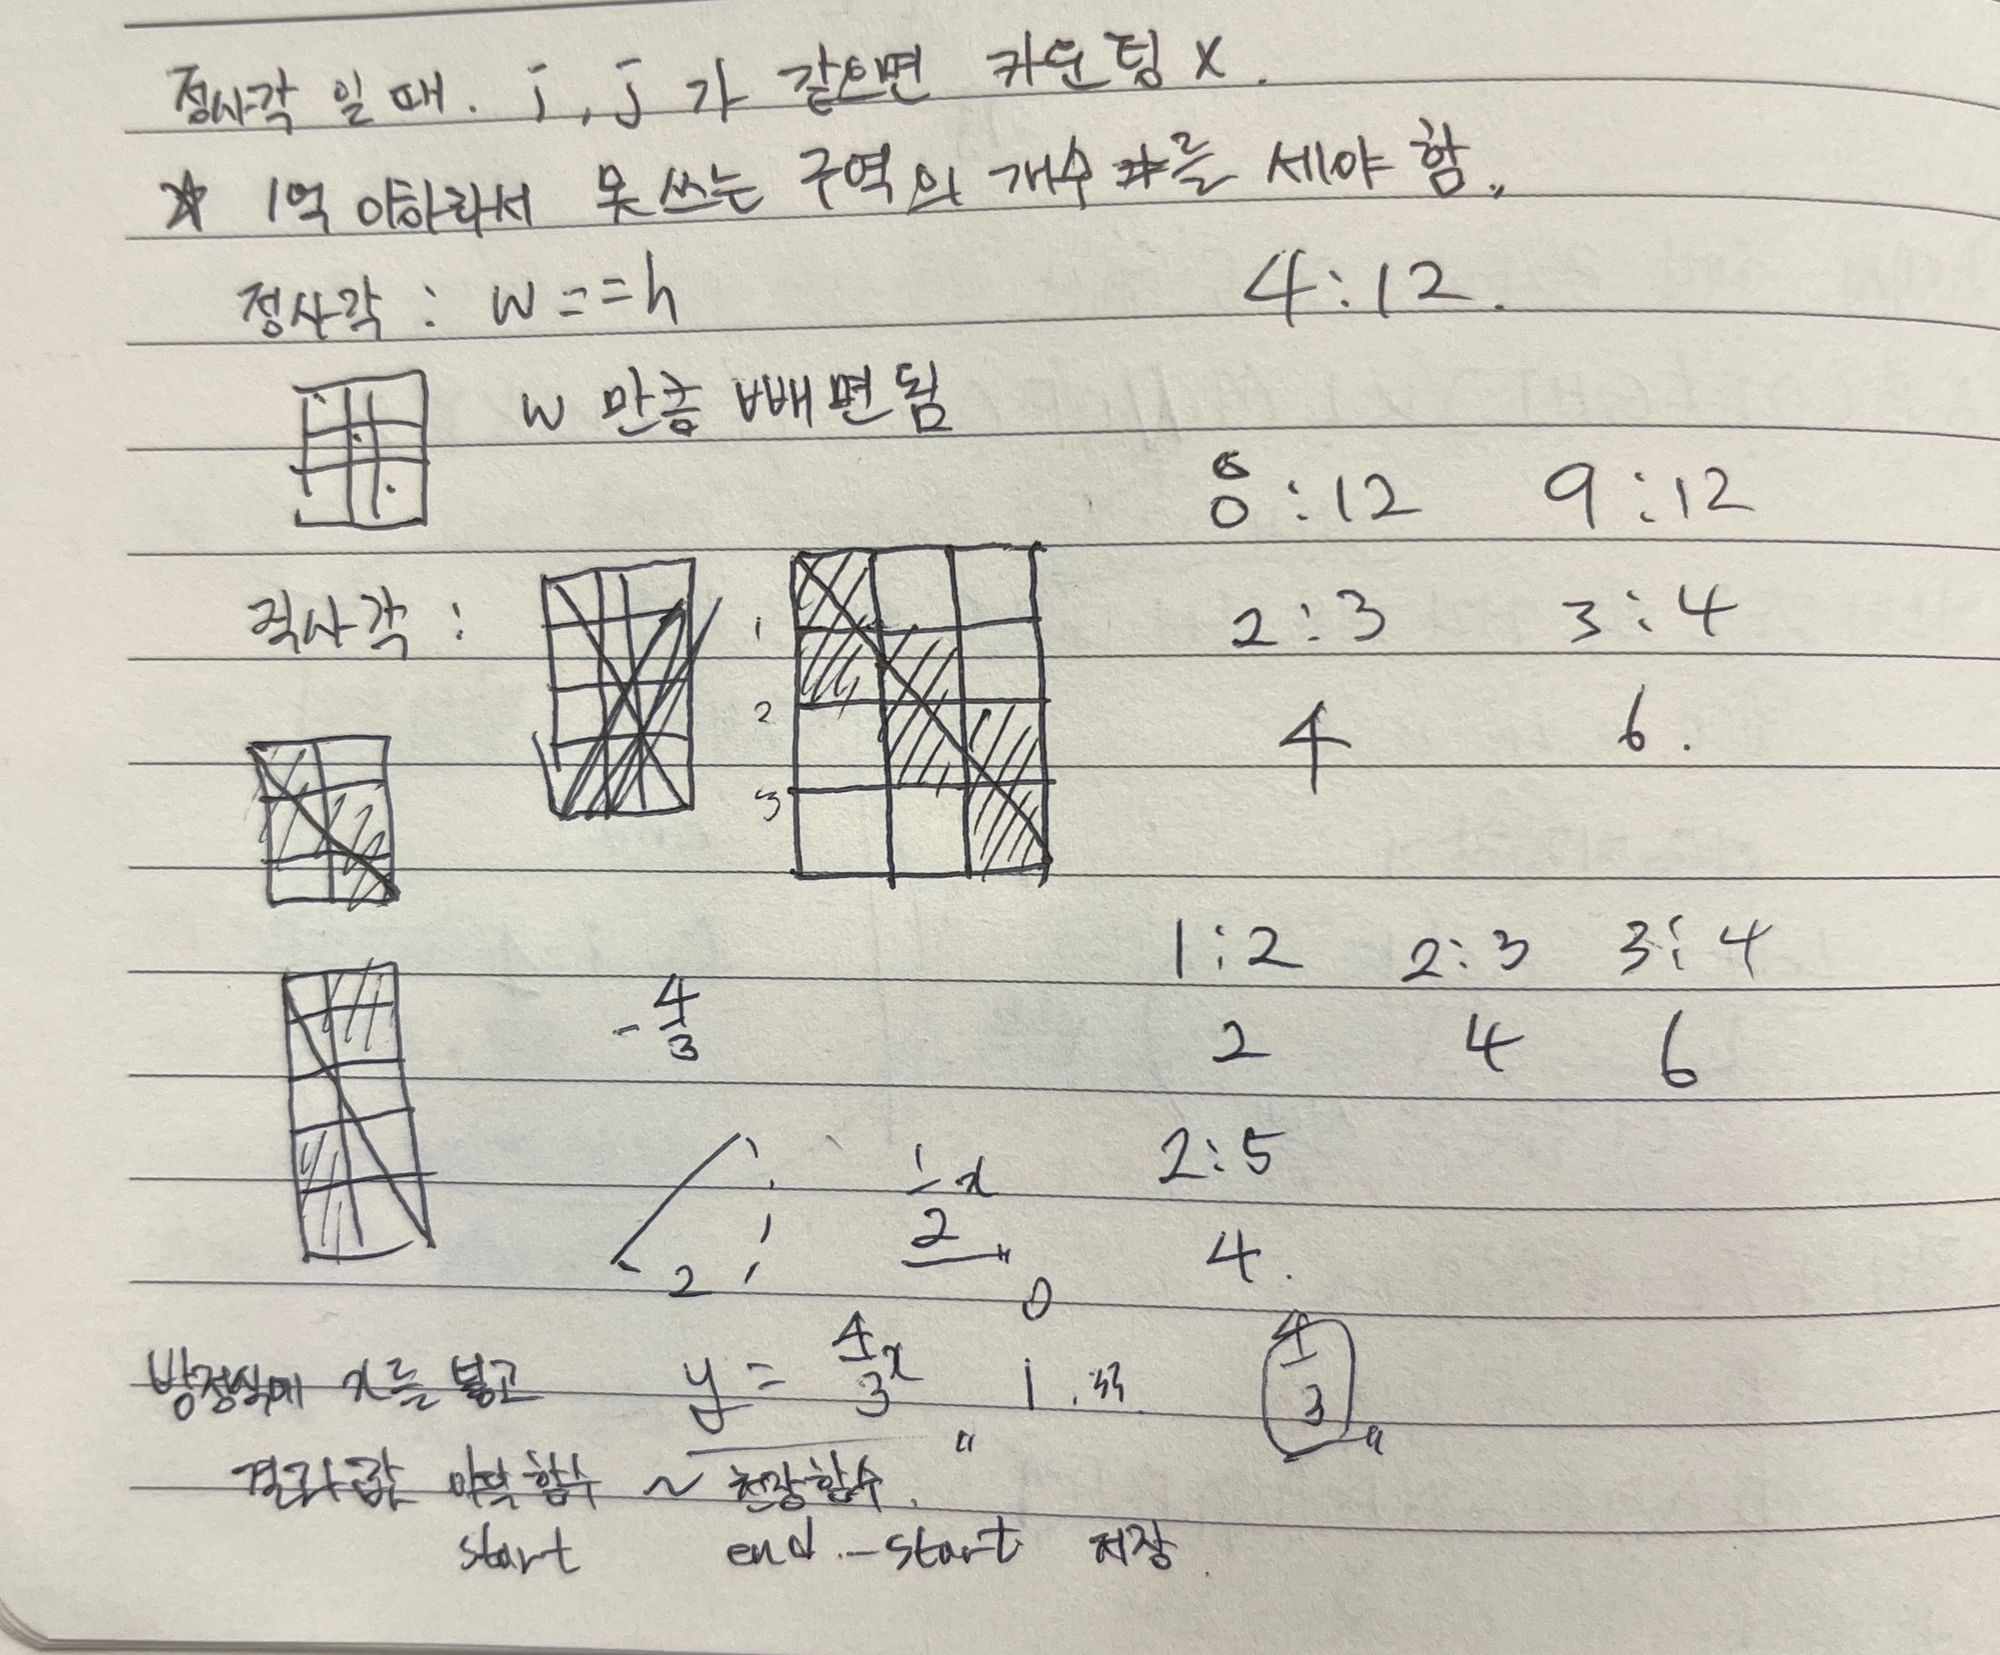 정사각 일때. i, j 가 같으면 카운팅 X.
☆ 1억 이하라서 못쓰는 구역의 개수를 세야 함.
정사각 : w == h
4:12.
w 만큼 빼면됨
8:12 9:12
직사각 :
2:3 3:4
1
2
3
4 6.
1:2 2:3 3:4
-4/3
2 4 6
2:5
1/2 x
2
4.
0
방정식에 x를 넣고 y = 4/3 x 1.33. 4/3
결과값 바닥함수 ~ 천장함수.
start end - start 저장.